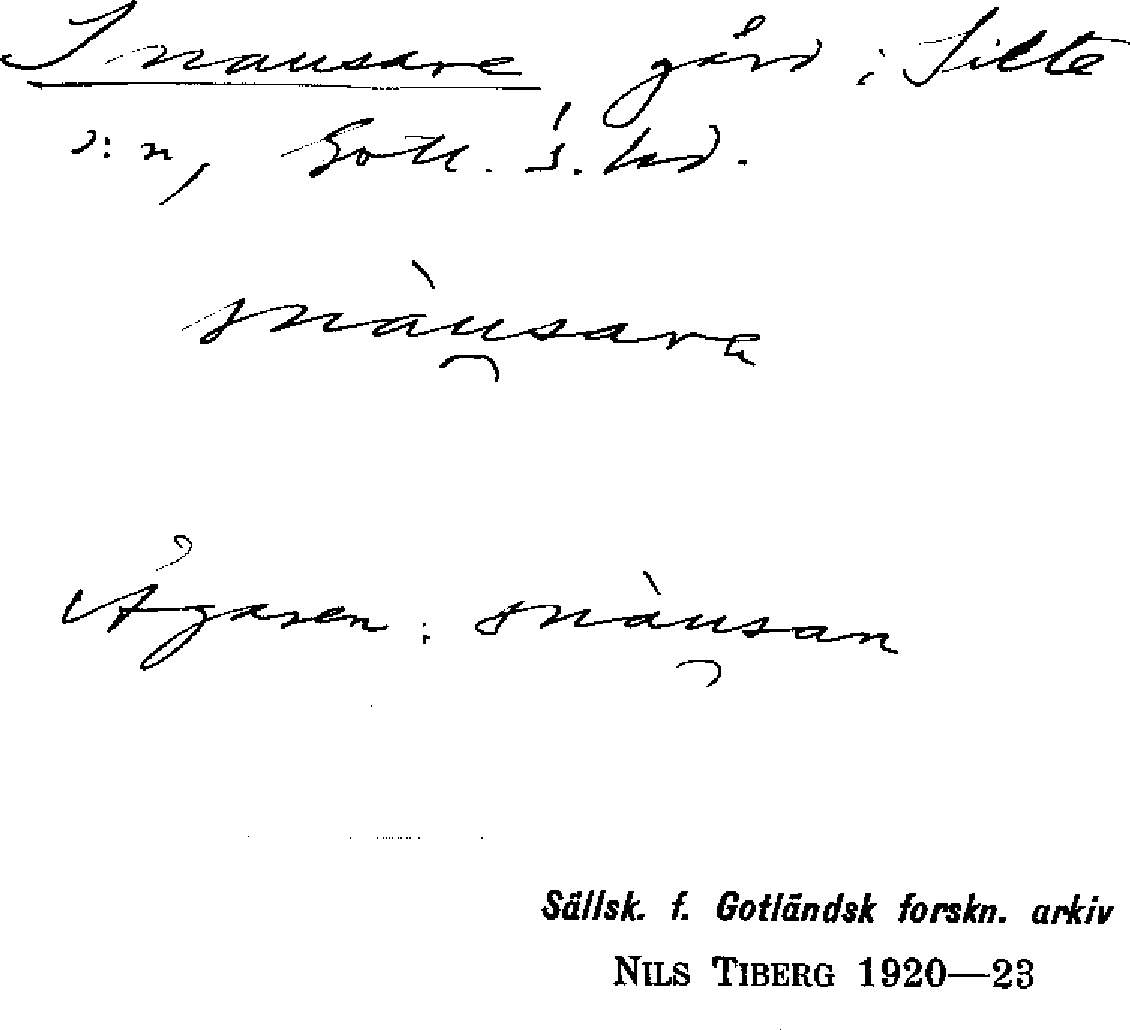 Snausare gård i Silte
s:n, Gotl. s. hd.
snàu̯sara
Ägaren: snàu̯san
Sällsk. f. Gotländsk forskn. arkiv
NILS TIBERG 1920—23